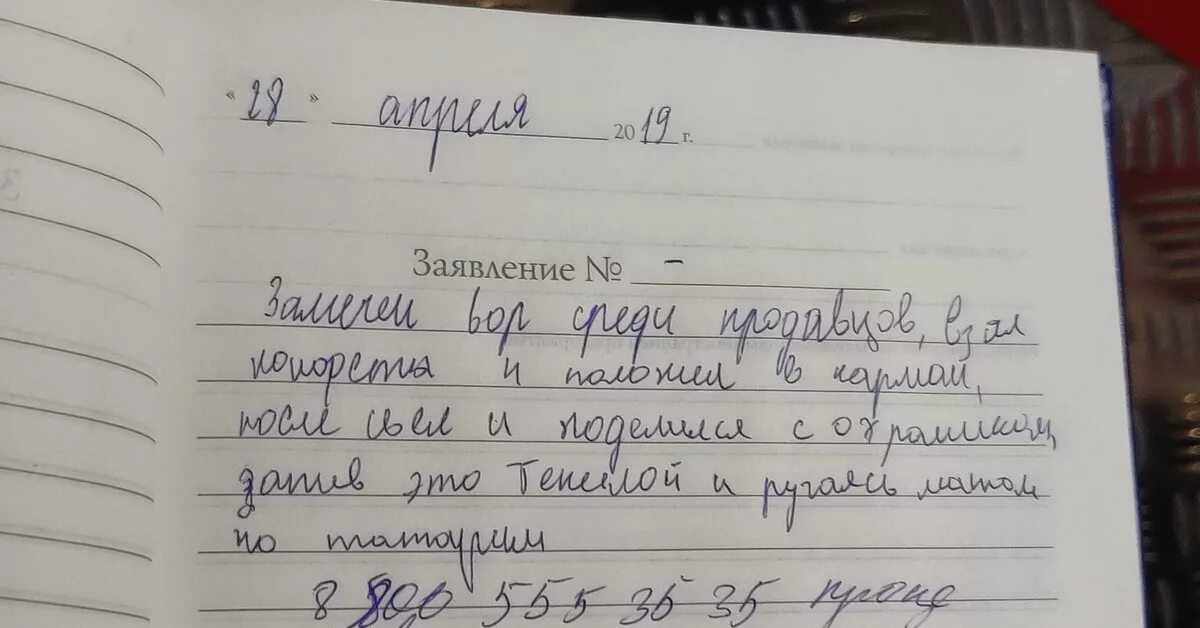 « 28 » апреля 2019 г.
Заявление № -
Замечен вор среди продавцов, взял
конфеты и положил в карман,
после съел и поделился с охранником,
запив это Текилой и ругаясь матом
по татарски
8 800 555 35 35